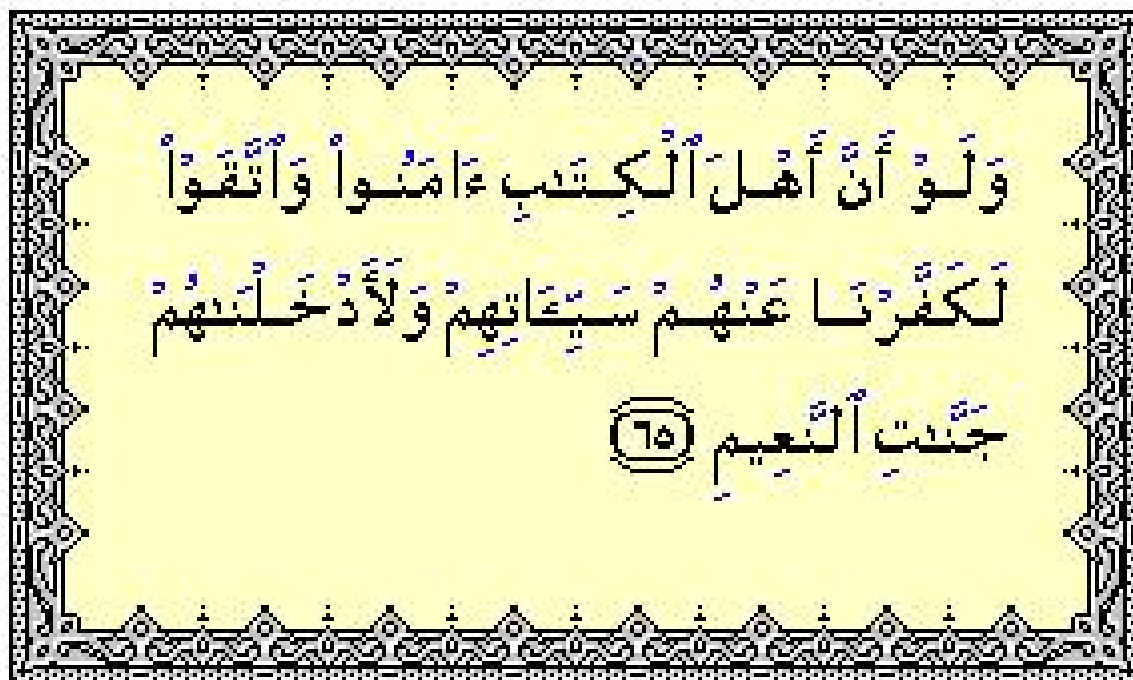 وَلَوْ أَنَّ أَهْلَ ٱلْكِتَٰبِ ءَامَنُوا۟ وَٱتَّقَوْا۟
لَكَفَّرْنَا عَنْهُمْ سَيِّـَٔاتِهِمْ وَلَأَدْخَلْنَٰهُمْ
جَنَّٰتِ ٱلنَّعِيمِ ٦٥